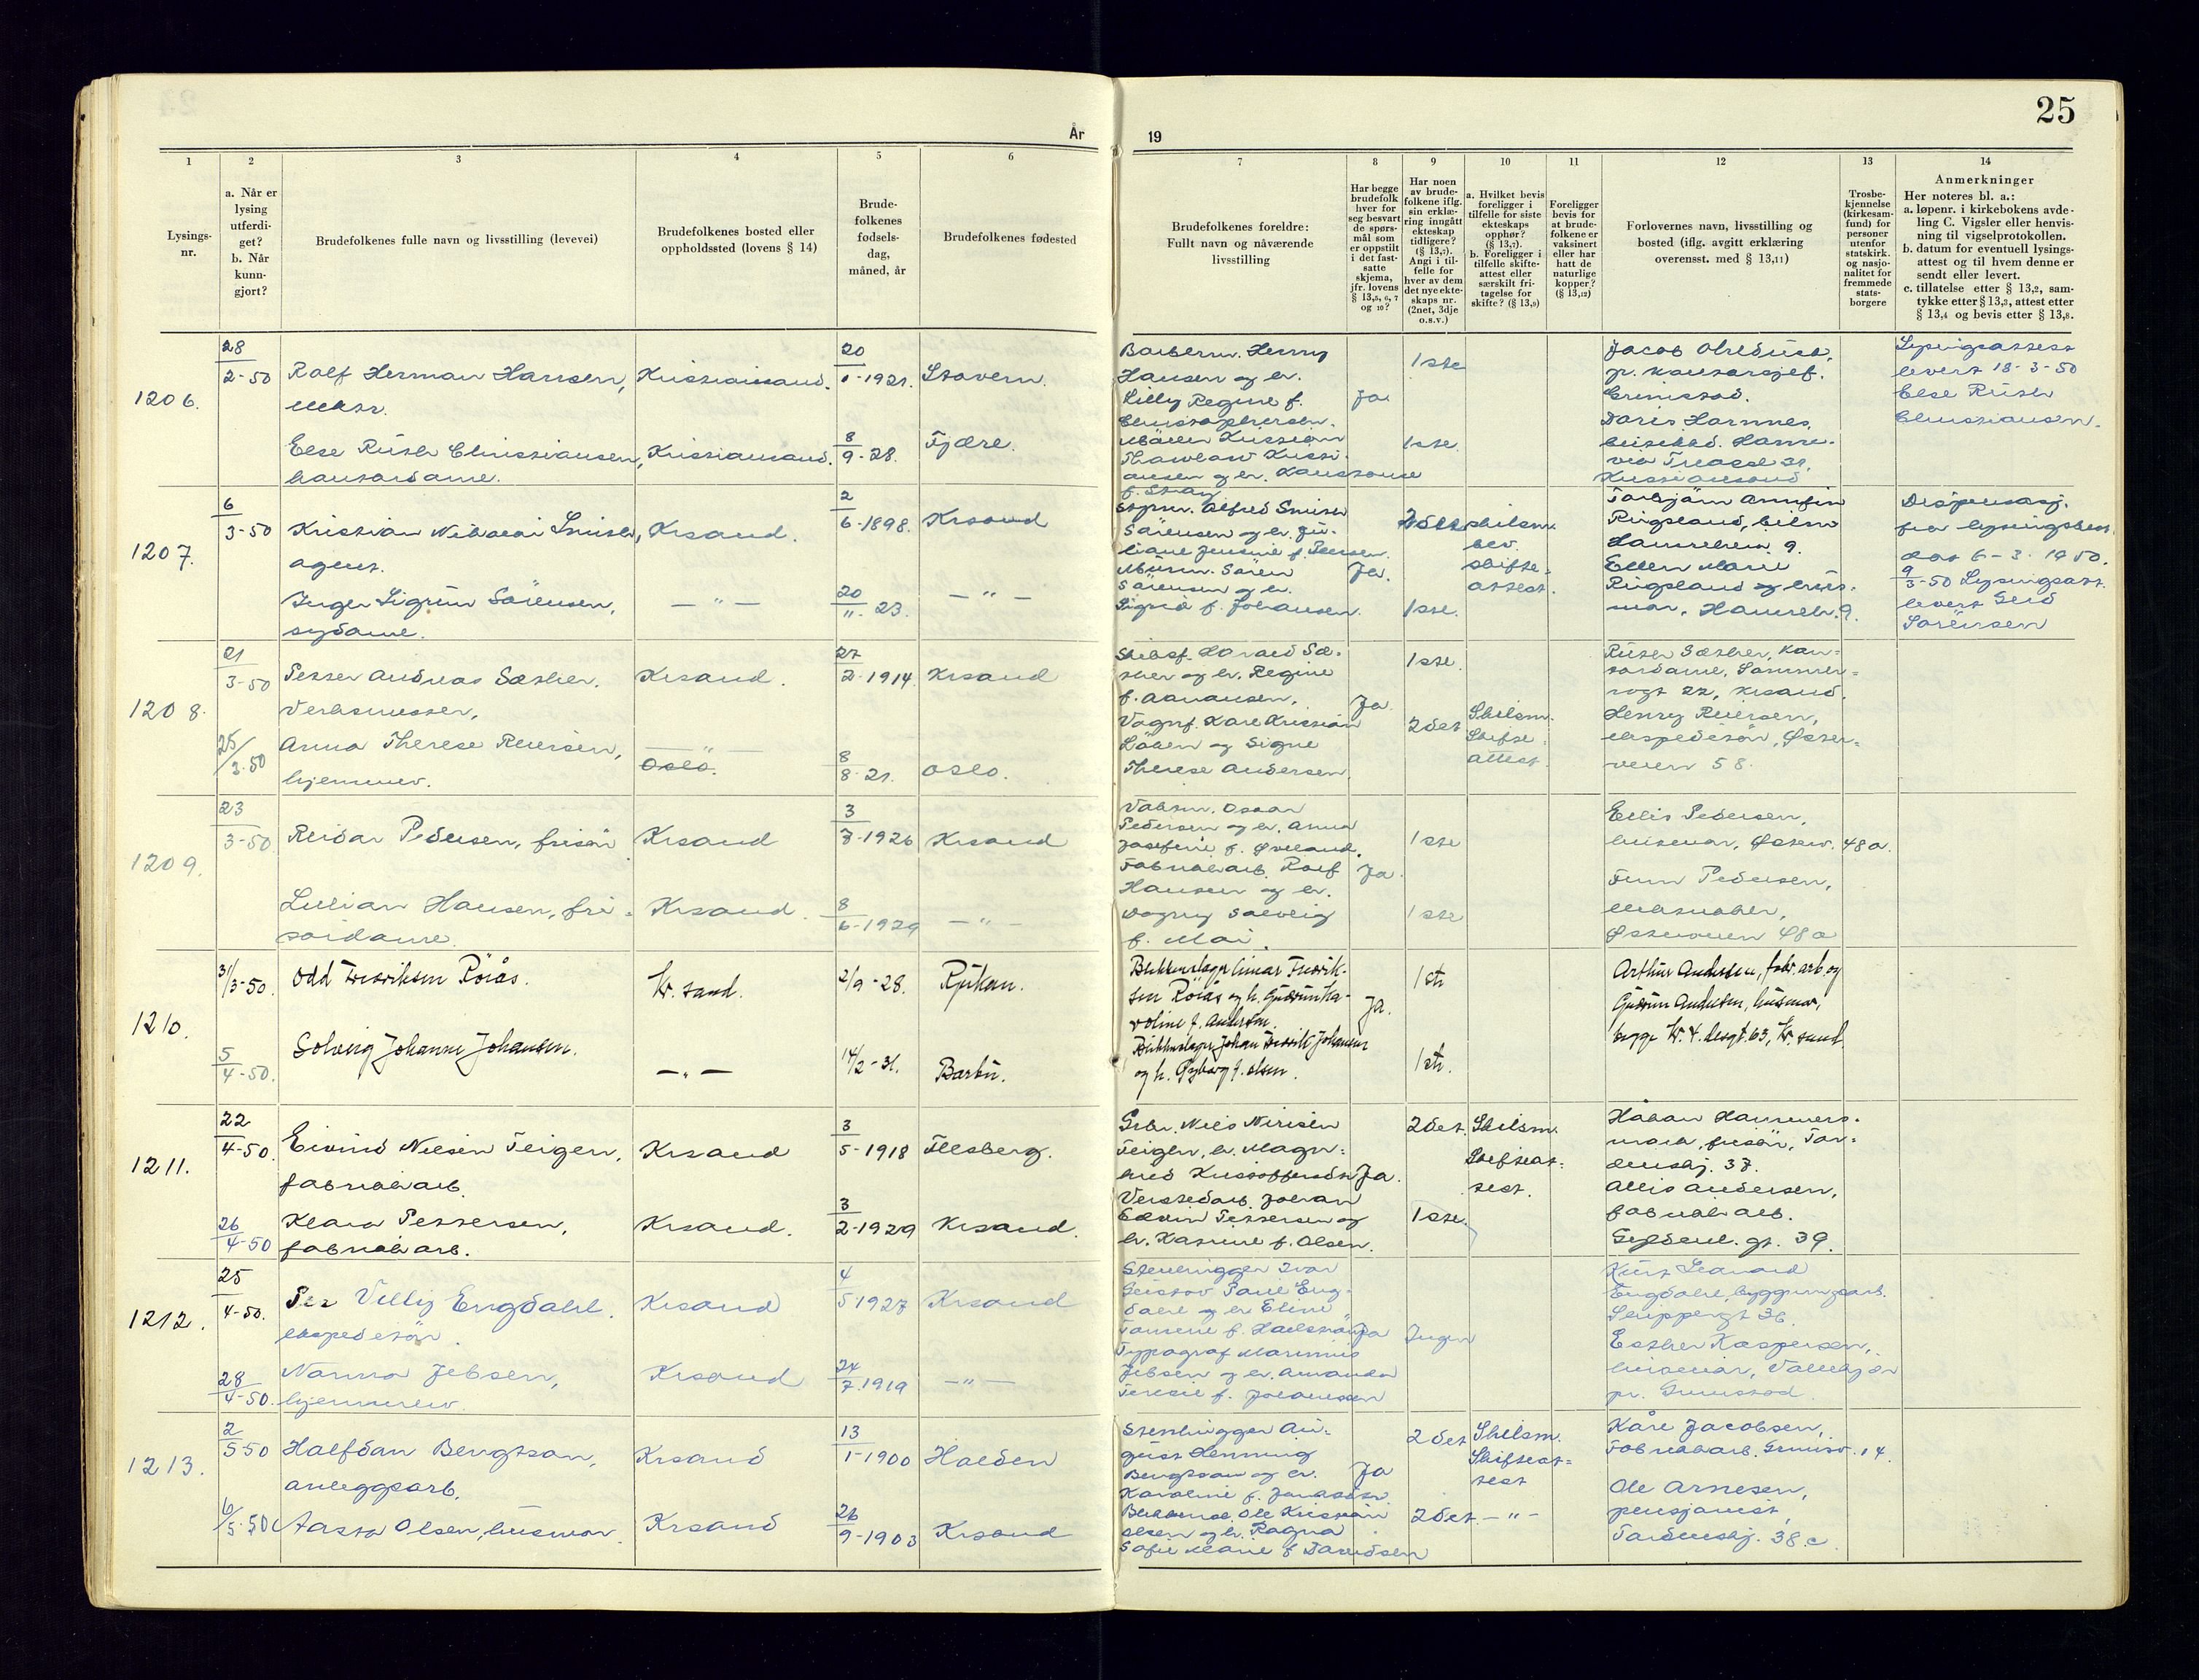 25
År
19
1
2
3
4
5
6
7
8
9
10
11
12
13
14
Lysings-
nr.
a. Når er
lysing
utferdi-
get?
b. Når
kunn-
gjort?
Brudefolkenes fulle navn og livsstilling (levevei)
Brudefolkenes bosted eller
oppholdssted (lovens § 14)
Brude-
folkenes
fødsels-
dag,
måned, år
Brudefolkenes fødested
Brudefolkenes foreldre:
Fullt navn og nåværende
livsstilling
Har begge
brudefolk
hver for
seg besvart
de spørs-
mål som
er oppstilt
i det fast-
satte
skjema,
jfr. lovens
§ 13,5, 6, 7
og 10?
Har noen
av brude-
folkene iflg.
sin erklæ-
ring inngått
ekteskap
tidligere?
(§ 13,7).
Angi i til-
felle for
hver av dem
det nye ekte-
skaps nr.
(2net, 3dje
o.s.v.)
a. Hvilket bevis
foreligger i
tilfelle for siste
ekteskaps
opphør?
(§ 13,7).
b. Foreligger i
tilfelle skifte-
attest eller
særskilt fri-
tagelse for
skifte? (§ 13,9)
Foreligger
bevis for
at brude-
folkene er
vaksinert
eller har
hatt de
naturlige
kopper?
(§ 13,12)
Forlovernes navn, livsstilling og
bosted (iflg. avgitt erklæring
overensst. med § 13,11)
Trosbe-
kjennelse
(kirkesam-
fund) for
personer
utenfor
statskirk.
og nasjo-
nalitet for
fremmede
stats-
borgere
Anmerkninger
Her noteres bl. a.:
a. løpenr. i kirkebokens avde-
ling C. Vigsler eller henvis-
ning til vigselprotokollen.
b. datum for eventuell lysings-
attest og til hvem denne er
sendt eller levert.
c. tillatelse etter § 13,2, sam-
tykke etter § 13,3, attest etter
§ 13,4 og bevis etter § 13,8.
1206.
28
2-50
Rolf Herman Hansen,
Kristiansand.
20
1-1921.
Stavern.
Else Ruth Christiansen,
kontordame.
Kristiansand.
8
9-28.
Fjære.
Henry
Hansen og h.
Lilly Regine f.
Christophersen.
Ja
1ste
1ste.
Grimstad.
Doris Hamnes,
Kristiansand
Lysingsattest
levert 18-3-50
Else Ruth
Christiansen.
1207.
6
3-50
Kristian Nikolai Smith,
agent.
Krsand.
2
6-1898.
Krsand
Inger Sigrun Sörensen,
sydame.
— " —
20
11. 23.
— " —
Alfred Smith
Sörensen og h. Ju-
liane Jensine f. Iversen.
Murm. Sören
Sörensen og h.
Sigrid f. Johansen.
Ja.
2det
1ste.
skilsm.
bev.
skifte-
attest.
Torbjörn Arnfin
Ringsland,
9.
Ellen Marie
Ringsland og hus-
mor, 9.
Dispensasj.
fra lysingsbest.
dat 6-3-1950.
9
3-50 Lysingsatt.
levert Gerd
Sörensen
1208.
21
3-50
25/
3-50
Petter Andreas Sæther.
Verksmester,
Krsand.
27
2-1914.
Krsand
Anna Therese Reiersen,
hjemmev.
— " —
Oslo.
8
8-21.
Oslo.
Skibsf. Harald Sæ-
ther og h. Regine
f. Aanansen.
Vognf. Karl Kristian
Löken og Signe
Therese Andersen.
Ja
1ste.
2det
Skilsm.
Skifte-
attest.
Ruth Sæther, kon-
tordame, Tömmer-
22, Krsand.
Henry Reiersen,
ekspeditör, Øster-
veien 58.
1209.
23
3-50
Reidar Pedersen, frisör
Krsand
3
7-1926
Krsand
Lilian Hansen, fri-
sördame.
Krsand.
8
6-1929
— " —
Oscar
Pedersen og h. Anna
Josefine f. Øveland.
Fabrikkarb. Rolf
Hansen og h.
Dagny Solveig
f. Moi.
Ja.
1ste
1ste
Ellis Pedersen,
husmor, Østerv. 48a.
Finn Pedersen,
Østerveien 48a
1210.
31/3-50.
5
4-50.
Odd Fredriksen Röiås.
Kr. sand.
2/9-28.
Rjukan.
Solveig Johanne Johansen.
— " —
14/2-31.
Barbu.
Blikkenslager Einar Fredrik-
sen Röiås og h. Gudrun Ka-
roline f. Andersen.
Blikkenslager Johan Fredrik Johansen
og h. Gyborg f. Olsen.
Ja.
1ste
1ste.
Arthur Andersen, fabr. arb og
Gudrun Andersen, husmor,
begge Kr. 4. desgt. 63, Kr. sand
1211.
22
4-50.
26
4-50
Eivind Nilsen Teigen,
fabrikkarb.
Krsand
3
5-1918
Flesberg.
Klara Pettersen,
fabrikkarb.
Krsand.
3
2-1929
Krsand.
Grbr. Nils Nirisen
Teigen, h. Magn-
hild Kristoffersdtr
Verkstedarb. Johan
Edvin Pettersen og
h. Kasine f. Olsen.
Ja.
2det.
1ste.
Skilsm.
Skifteat-
test.
Håkon Hammers-
mark, frisör, Tor-
densskj. 37.
Allis Andersen,
fabrikkarb.
Gyldenl. gt. 39.
1212.
25
4-50.
28
4-50.
Per Villy Engdahl.
ekspeditör.
Krsand
4
5-1927
Krsand
Nanna Jebsen,
hjemmev.
Krsand
24
7.1919
— " —
Stenhugger Ivar
Gustav Paul Eng-
dahl og h. Eline
Typograf Marinius
Jebsen og h. Amanda
Teresie f. Johannessen
Ja
Ingen
Kurt Leonard
Engdahl, bygningsarb.
Skippergt 36.
Esther Kaspersen,
husmor,
pr. Grimstad.
1213.
2
5-50
6/5-50
Halfdan Bengtson,
anleggsarb.
Krsand
13
1-1900
Halden
Aasta Olsen, husmor.
Krsand
26
9-1903
Krsand
Stenhugger Au-
gust Henning
Bengtson og h.
Karoline f. Jacobsen
Ole Kristian
Olsen og h. Ragna
Sofie Marie f. Davidsen
Ja
2det
2det.
Skilsm.
Skifteat-
test
— " —
Kåre Jacobsen,
Fabrikkarb. 14.
Ole Arnesen,
pensjonist,
Tordenskj. 38.c.